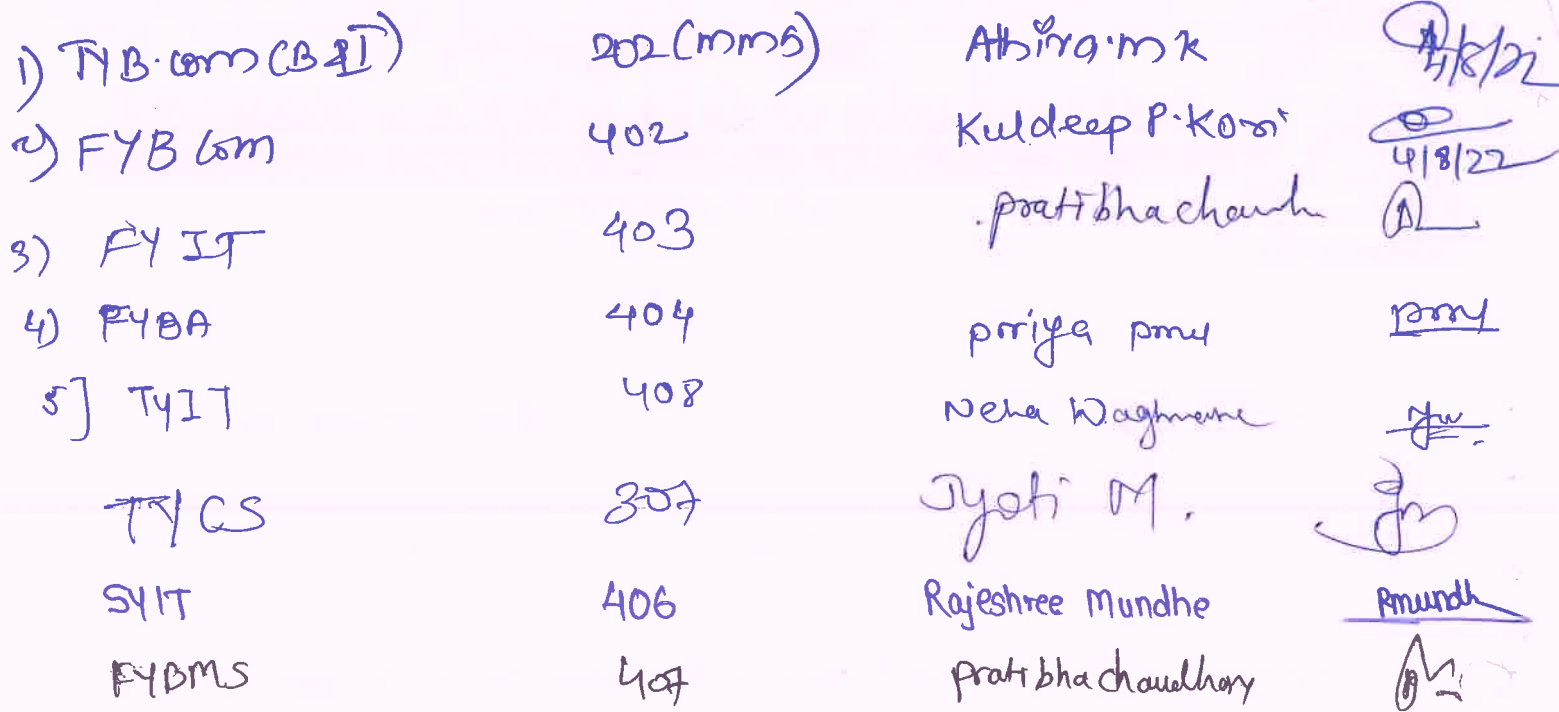 1) TYB.com (B&I) 202 (mms) Athira.m k 4/8/22
2) FYB Com 402 Kuldeep P. Kori 4/8/22
3) FY IT 403 pratibha
4) FYBA 404 priya
5] TYIT 408 Neha Waghmare
TYCS 307 Jyoti M.
SYIT 406 Rajeshree Mundhe Rmundh
FYBMS 407 pratibha chaudhary